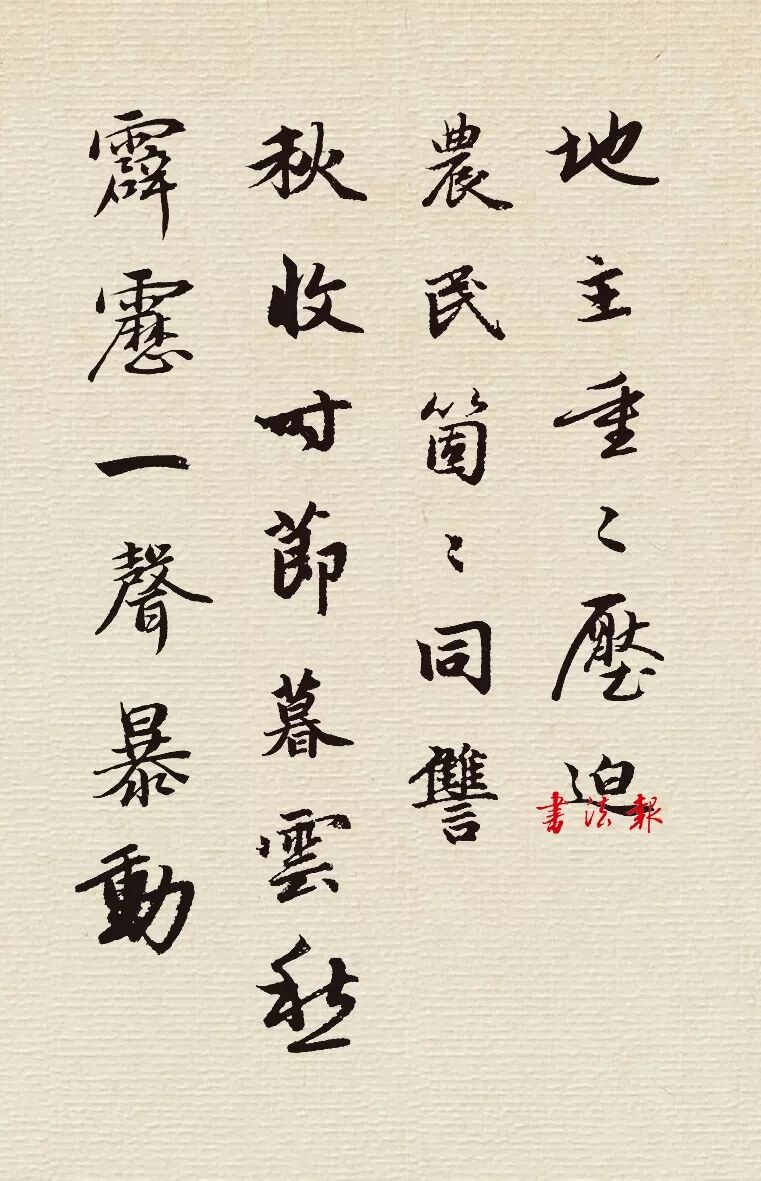 地主重〻壓迫
農民箇〻同讐
秋收时節暮雲愁
霹靂一聲暴動
書法報